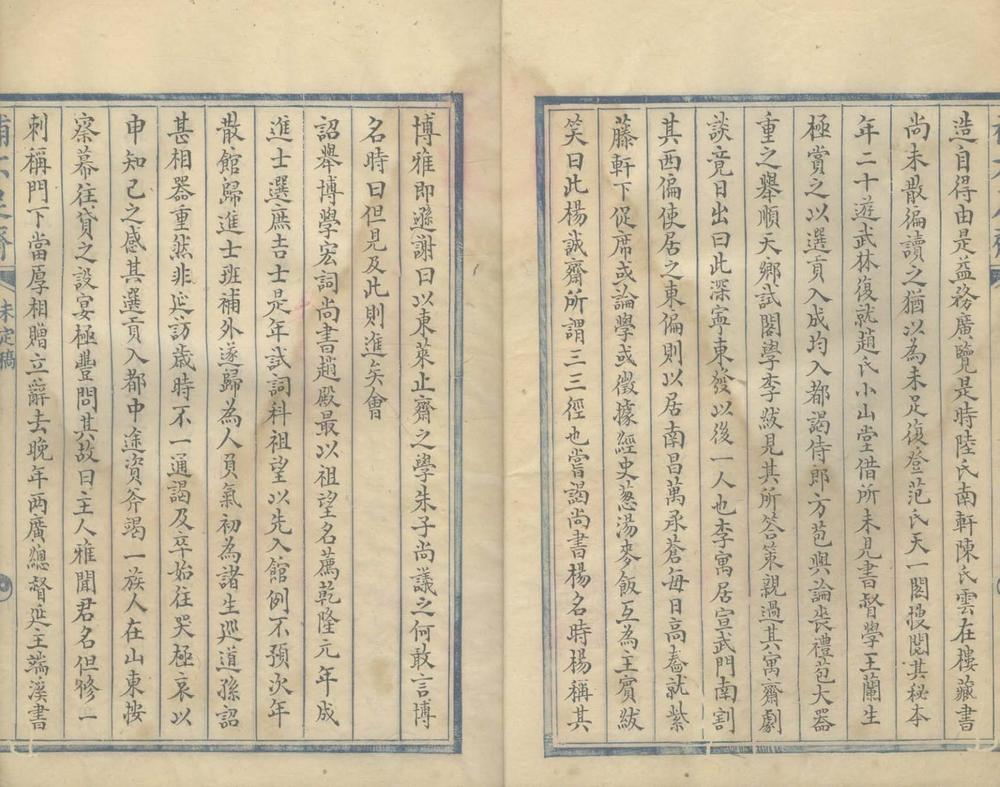 造自得由是益務廣覽是時陸氏南軒陳氏雲在樓藏書
尚未散徧讀之猶以為未足復登范氏天一閣搜閱其秘本
年二十遊武林復就趙氏小山堂借所未見書督學王蘭生
極賞之以選貢入成均入都謁侍郎方苞與論喪禮苞大器
重之舉順天鄉試閣學李紱見其所答策親過其寓齋劇
談竟日出曰此深寧東發以後一人也李寓居宣武門南割
其西偏使居之東偏則以居南昌萬承蒼每日高舂就紫
藤軒下促席或論學或徵據經史蔥湯麥飯互為主賓紱
笑曰此楊誠齋所謂三三徑也嘗謁尚書楊名時楊稱其
博雅即遜謝曰以東萊止齋之學朱子尚議之何敢言博
名時曰但見及此則進矣會
詔舉博學宏詞尚書趙殿最以祖望名薦乾隆元年成
進士選庶吉士是年試詞科祖望以先入館例不預次年
散館歸進士班補外遂歸為人員氣初為諸生巡道孫詔
甚相器重然非延訪歲時不一通謁及卒始往哭極哀以
申知己之感其選貢入都中途資斧竭一族人在山東按
察幕往貸之設宴極豐問其故曰主人雅聞君名但修一
刺稱門下當厚相贈立辭去晚年兩廣總督延主端溪書
未定稿